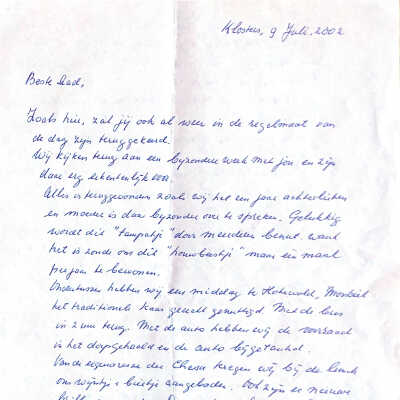 Klosters, 9 Juli, 2002
Beste Aad,
Zoals hier, zal jij ook al weer in de regelmaat van
de dag zijn teruggekeerd.
Wij kijken terug aan een byzondere week met jou en zijn
daar erg erkentelijk voor.
Alles is teruggevonden zoals wij het een jaar achterlieten
en moeder is daar byzonder over te spreken. Gelukkig
wordt dit door meerderen benut, want
het is zonde om dit maar een maal
per jaar te bewonen.
Ondertussen hebben wij een middag te
het traditionele kaas gerecht genuttigd. Met de bus
in 2 uur terug. Met de auto hebben wij de voorraad
in het dorp gehaald en de auto bijgetankt.
Van de eigenaresse den Chesa kregen wij bij de lunch
ons wijntje + biertje aangeboden. Ook zijn er nieuwe